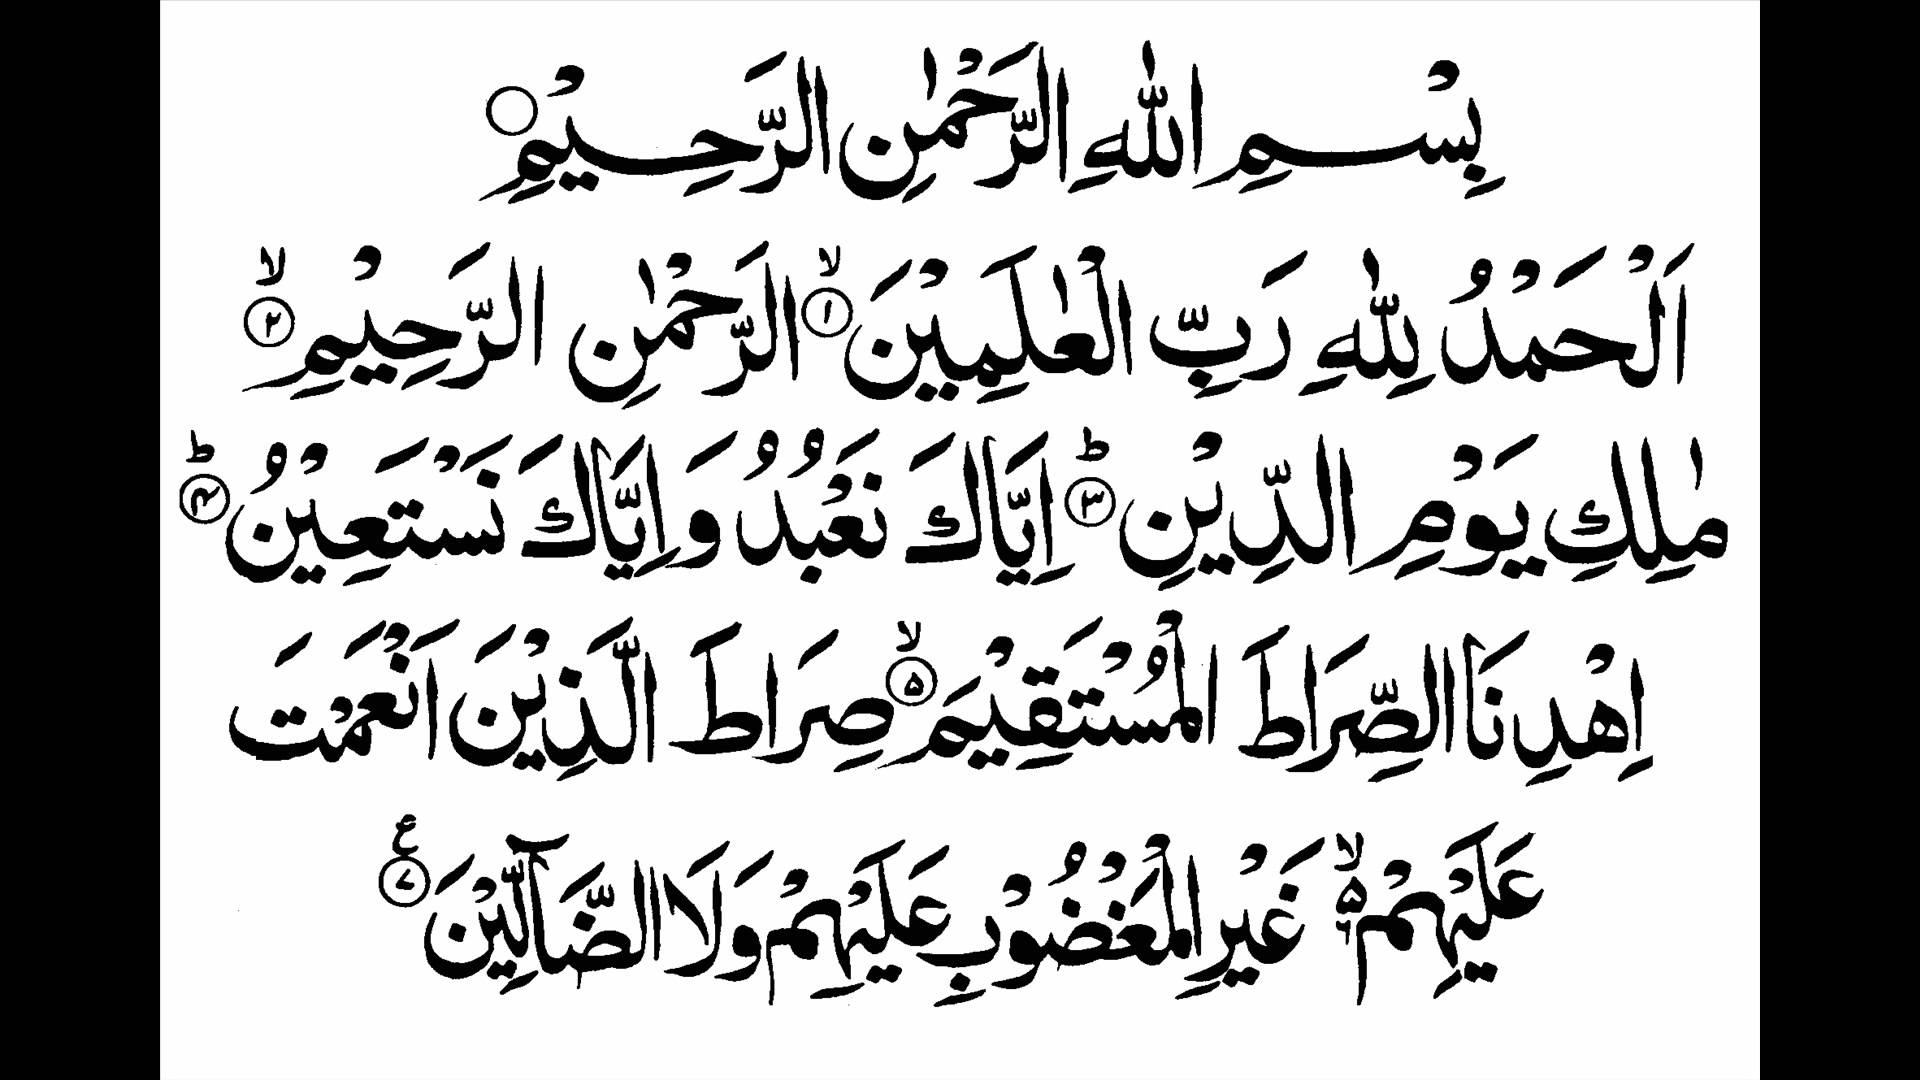 بِسْمِ اللّٰهِ الرَّحْمٰنِ الرَّحِيْمِ ۝
اَلْحَمْدُ لِلّٰهِ رَبِّ الْعٰلَمِيْنَ ۙ﴿۱﴾ الرَّحْمٰنِ الرَّحِيْمِ ۙ﴿۲﴾
مٰلِكِ يَوْمِ الدِّيْنِ ؕ﴿۳﴾ اِيَّاكَ نَعْبُدُ وَ اِيَّاكَ نَسْتَعِيْنُ ؕ﴿۴﴾
اِهْدِنَا الصِّرَاطَ الْمُسْتَقِيْمَ ۙ﴿۵﴾ صِرَاطَ الَّذِيْنَ اَنْعَمْتَ
عَلَيْهِمْ ۙ۵ غَيْرِ الْمَغْضُوْبِ عَلَيْهِمْ وَلَا الضَّآلِّيْنَ ﴿۷﴾ ع